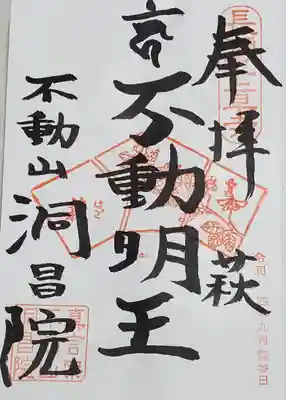 奉拝
萩
高不動明王
はぎ
不動山洞昌院
令和四年九月